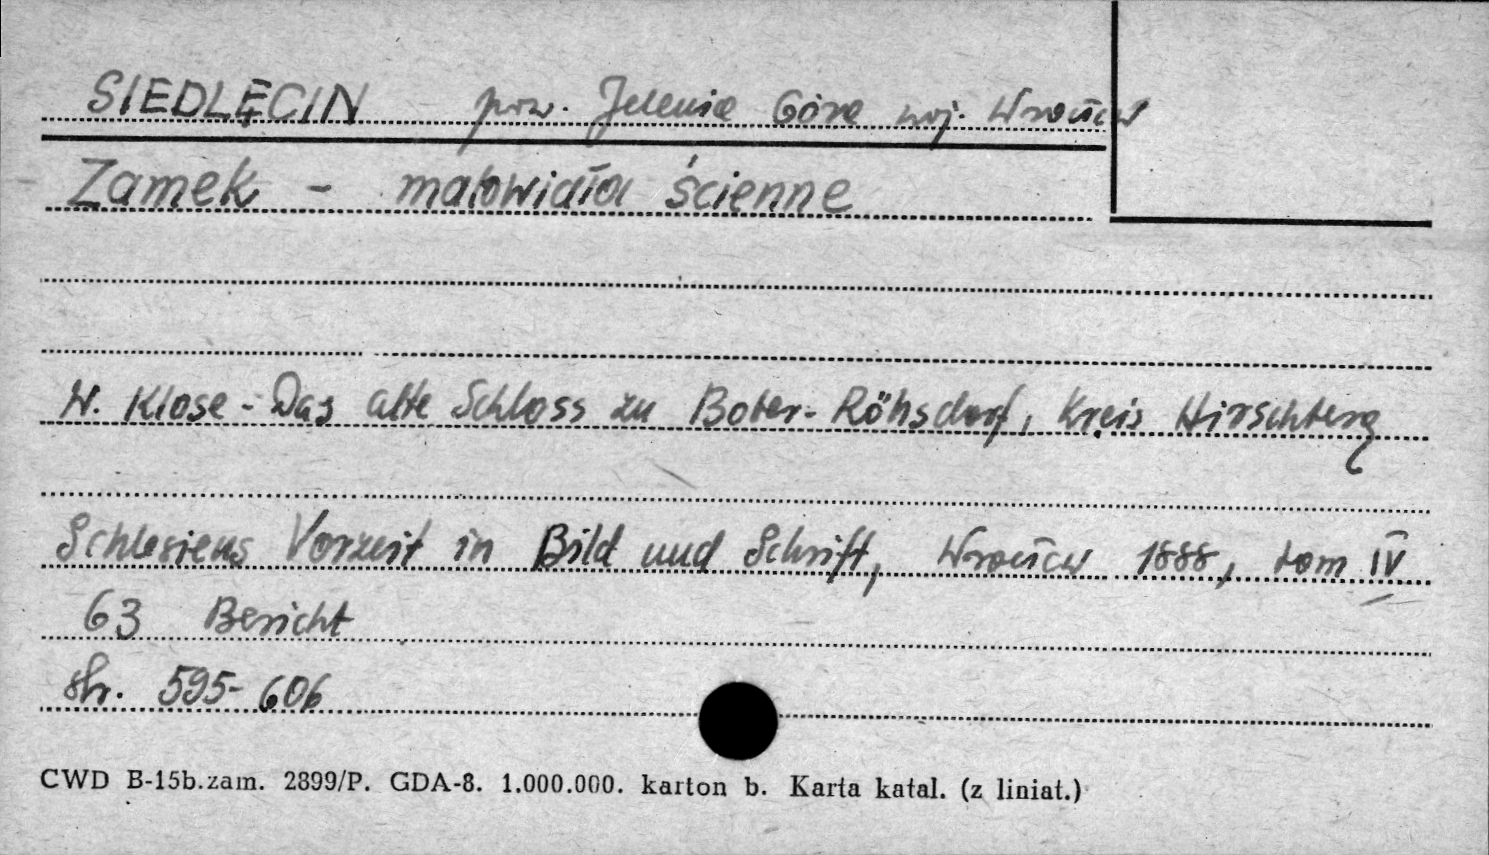 SIEDLĘCIN pow. Jelenia Góra woj. Wrocław
Zamek - malowidła ścienne
W. Klose - Das alte Schloss zu Bober-Röhsdorf, Kreis Hirschberg
Schlesiens Vorzeit in Bild und Schrift, Wrocław 1888, tom IV
63 Bericht
str. 595-606
CWD B-15b.zam. 2899/P. GDA-8. 1.000.000. karton b. Karta katal. (z liniat.)